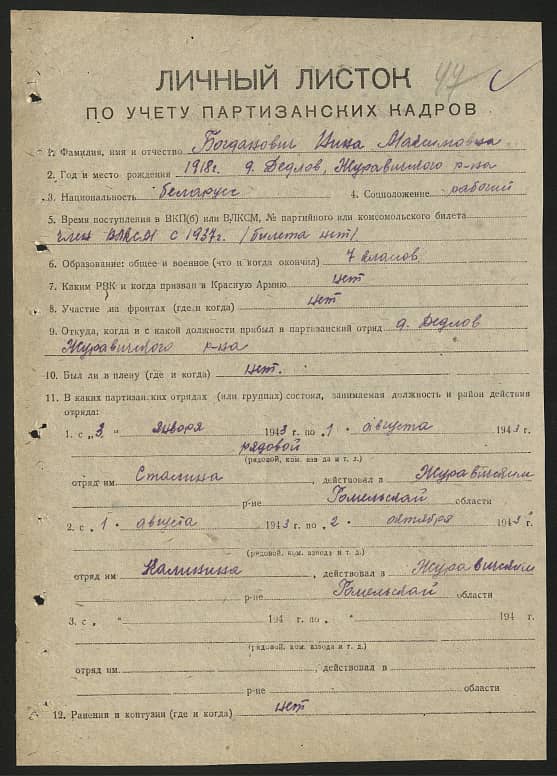 ЛИЧНЫЙ ЛИСТОК 44
ПО УЧЕТУ ПАРТИЗАНСКИХ КАДРОВ
1. Фамилия, имя и отчество Богданович Нина Максимовна
2. Год и место рождения 1918г. д. Дедлов, Журавичского р-на
3. Национальность беларусс 4. Соцположение рабочий
5. Время поступления в ВКП(б) или ВЛКСМ, № партийного или комсомольского билета
член ВЛКСМ с 1937г. /билета нет/
6. Образование: общее и военное (что и когда окончил) 7 класов
7. Каким РВК и когда призван в Красную Армию нет
8. Участие на фронтах (где и когда) нет
9. Откуда, когда и с какой должности прибыл в партизанский отряд д. Дедлов
Журавичского р-на
10. Был ли в плену (где и когда) нет.
11. В каких партизанских отрядах (или группах) состоял, занимаемая должность и район действия
отряда:
1. с „3 " января 1943 г. по „1 " августа 1943 г.
рядовой
(рядовой, ком. взвода и т. д.)
отряд им. Сталина, действовал в Журавичском
р-не Гомельской области
2. с „1 " августа 1943 г. по „2 " октября 1943 г.
(рядовой, ком. взвода и т. д.)
отряд им Калинина, действовал в Журавичском
р-не Гомельской области
3. с „ " 194 г. по „ " 194 г.
(рядовой, ком. взвода и т. д.)
отряд им. , действовал в
р-не области
12. Ранения и контузии (где и когда) нет